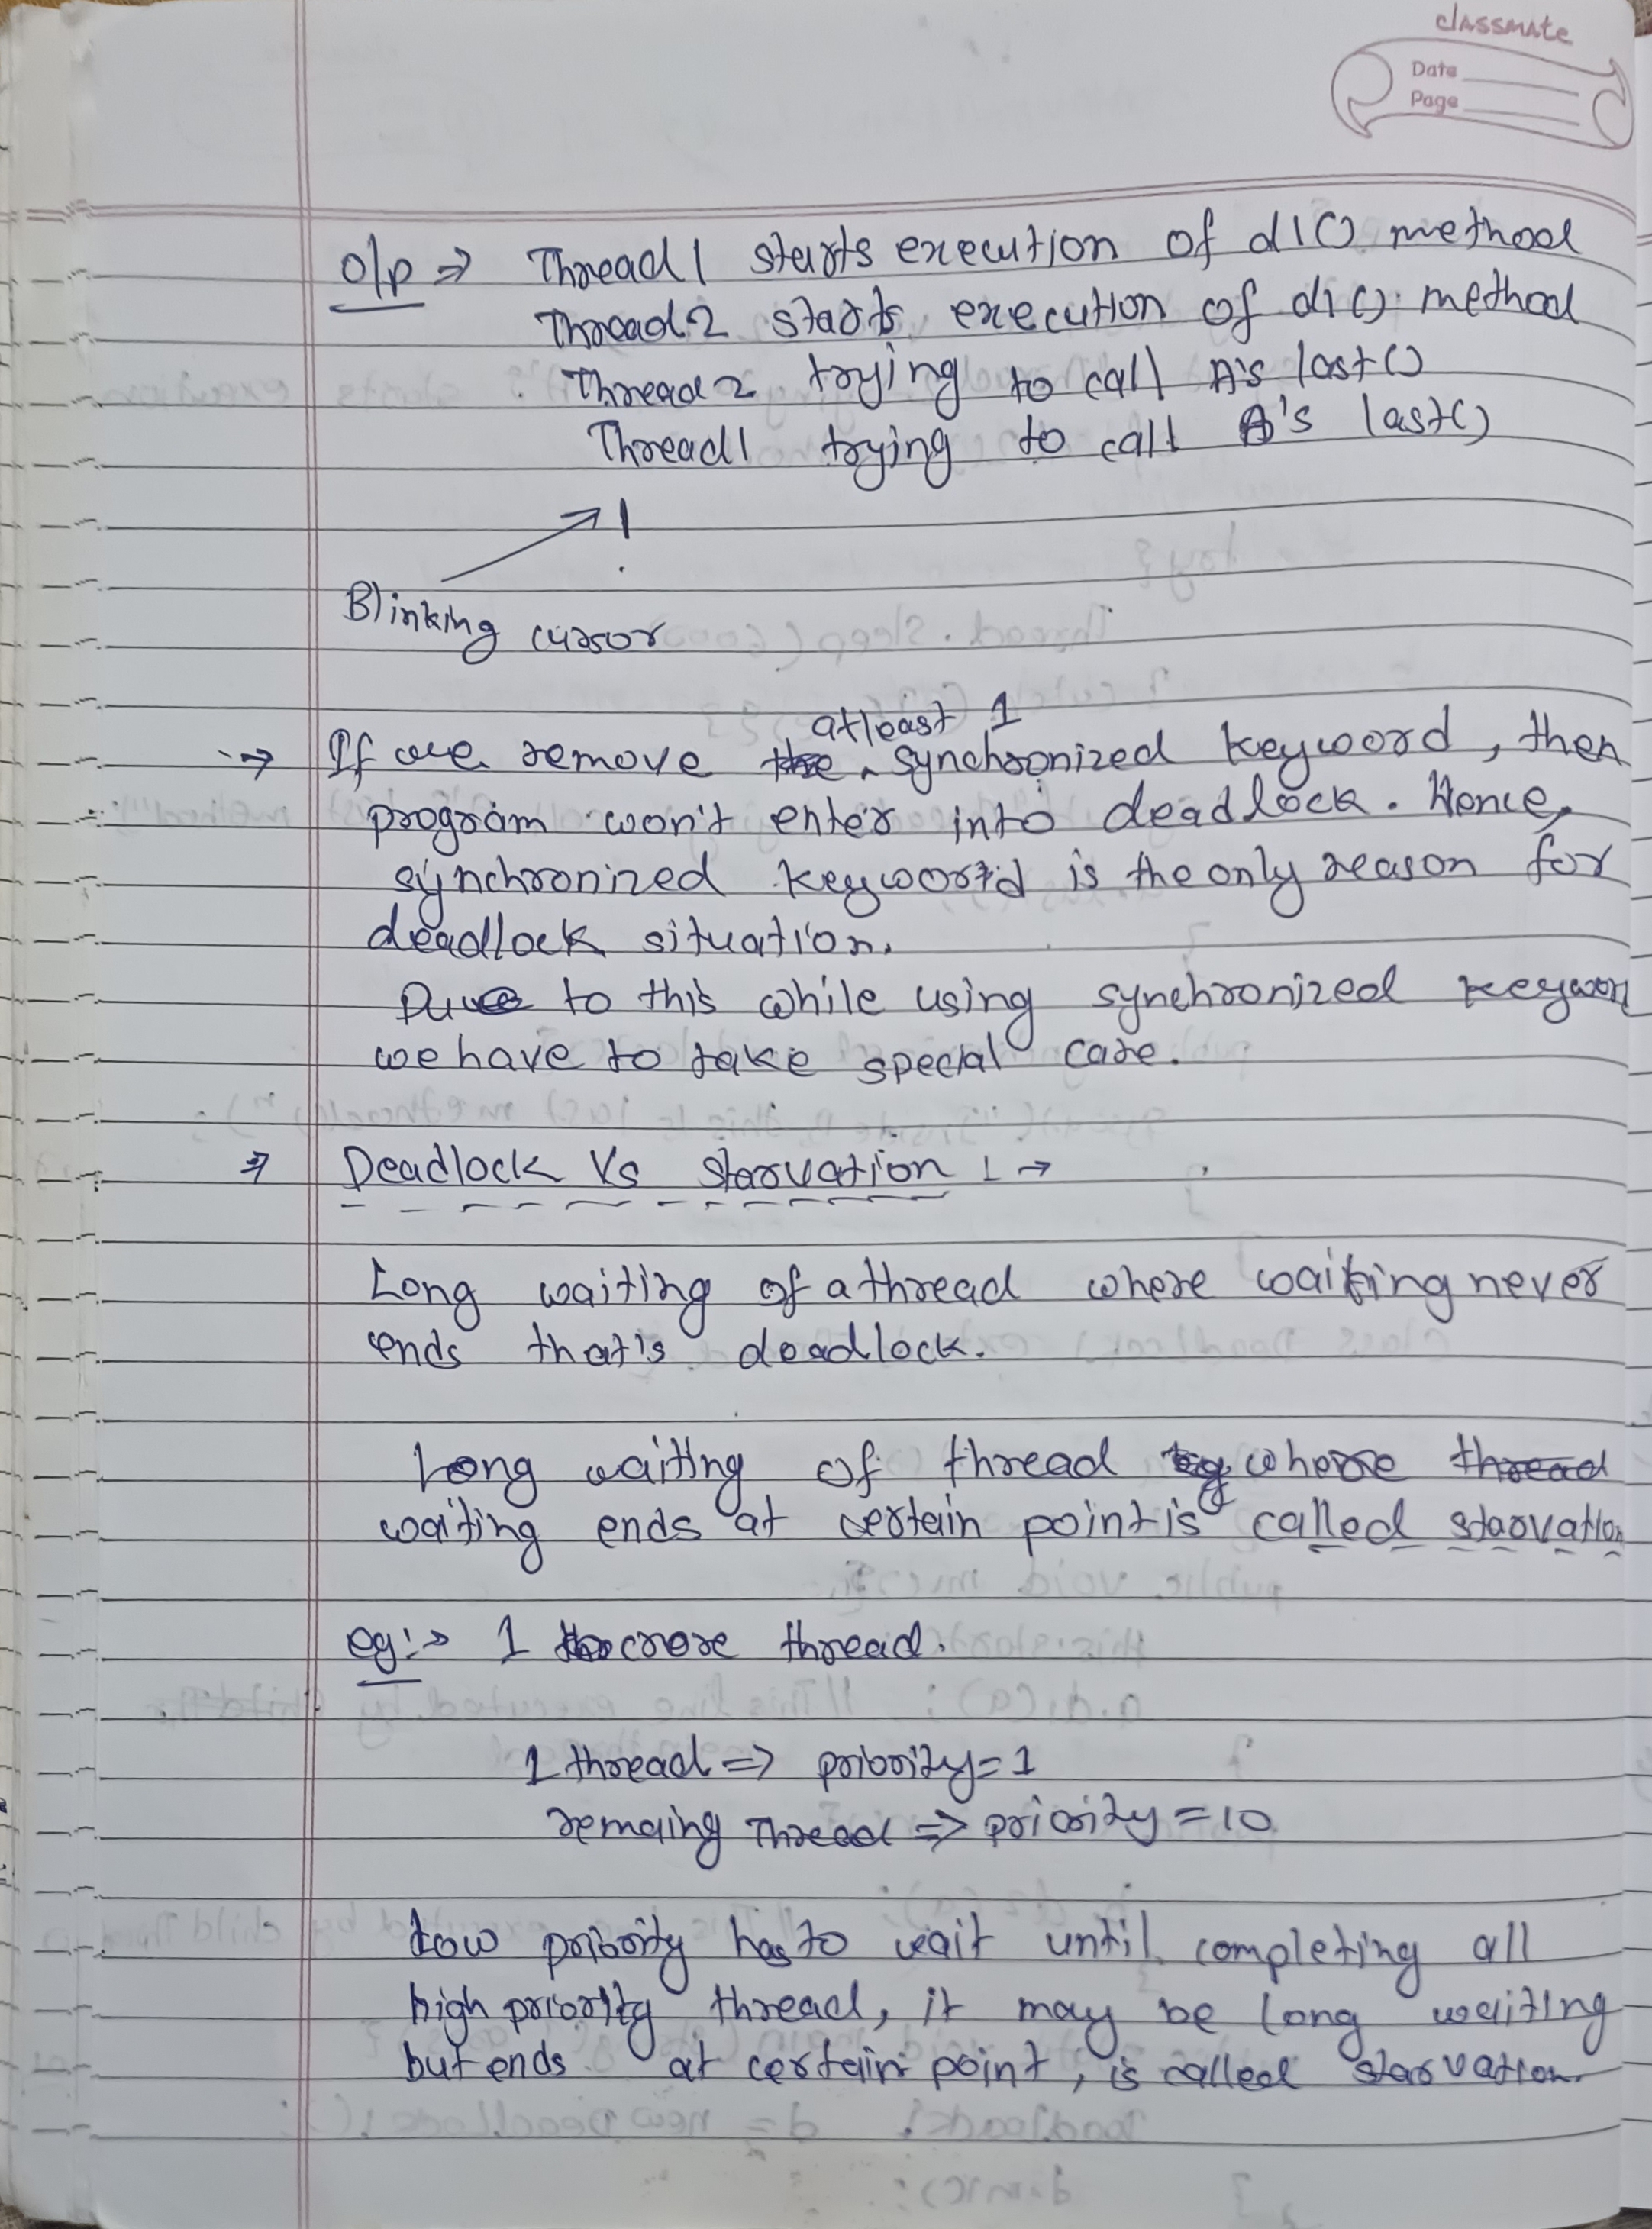 classmate
Date
Page
O/P ⇒ Thread1 starts execution of d1() method
Thread2 starts execution of d1() method
Thread2 trying to call A's last()
Thread1 trying to call B's last()
Blinking cursor
→ If we remove the atleast 1 synchronized keyword, then
program won't enter into deadlock. Hence,
synchronized keyword is the only reason for
deadlock situation.
Due to this while using synchronized keywor
we have to take special care.
⇒ Deadlock Vs starvation :→
Long waiting of a thread where waiting never
ends that's deadlock.
Long waiting of thread where thread
waiting ends at certain point is called starvation
eg:→ 1 crore thread.
1 thread ⇒ priority=1
remaing Thread ⇒ priority=10
Low priority has to wait until completing all
high priority thread, it may be long waiting
but ends at certain point, is called starvation.